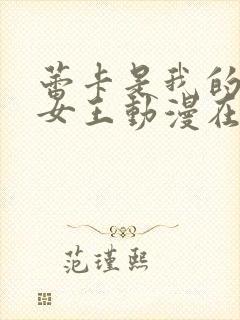 蕾卡是我的
女王動漫在
范瑾熙